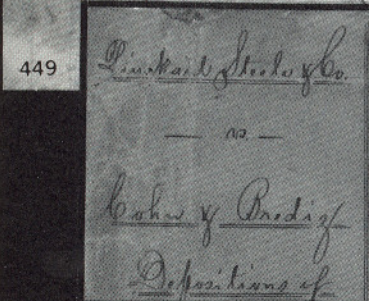 449
Kinkaid Steele & Co.
— vs. —
Cohn & Bredig
Depositions of